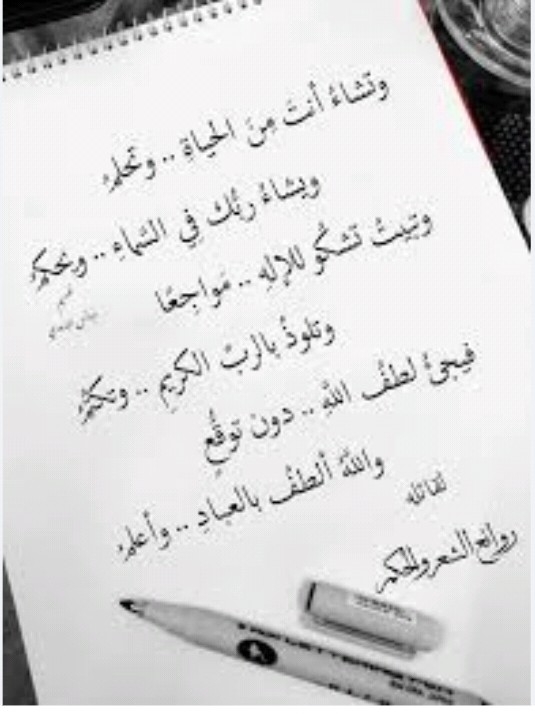 وتشاءُ أنتَ مِنَ الحياةِ .. وتَحلمُ
ويشاءُ ربُّك فِي السَّماءِ .. ويحكمُ
وتبيتُ تشكُو للإلهِ .. مَواجعًا
وتلوذُ بالربِّ الكريمِ .. وتكتمُ
فيجئُ لطفُ اللهِ .. دون توقُّعٍ
واللهُ ألطفُ بالعبادِ .. وأعلمُ
لقائله
روائع الشعر والحكم